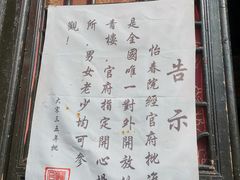 告示
怡春院經官府批准
是全國唯一對外開放的
青樓，官府指定開心場
所，男女老少均可參
觀！
大宋三五年批